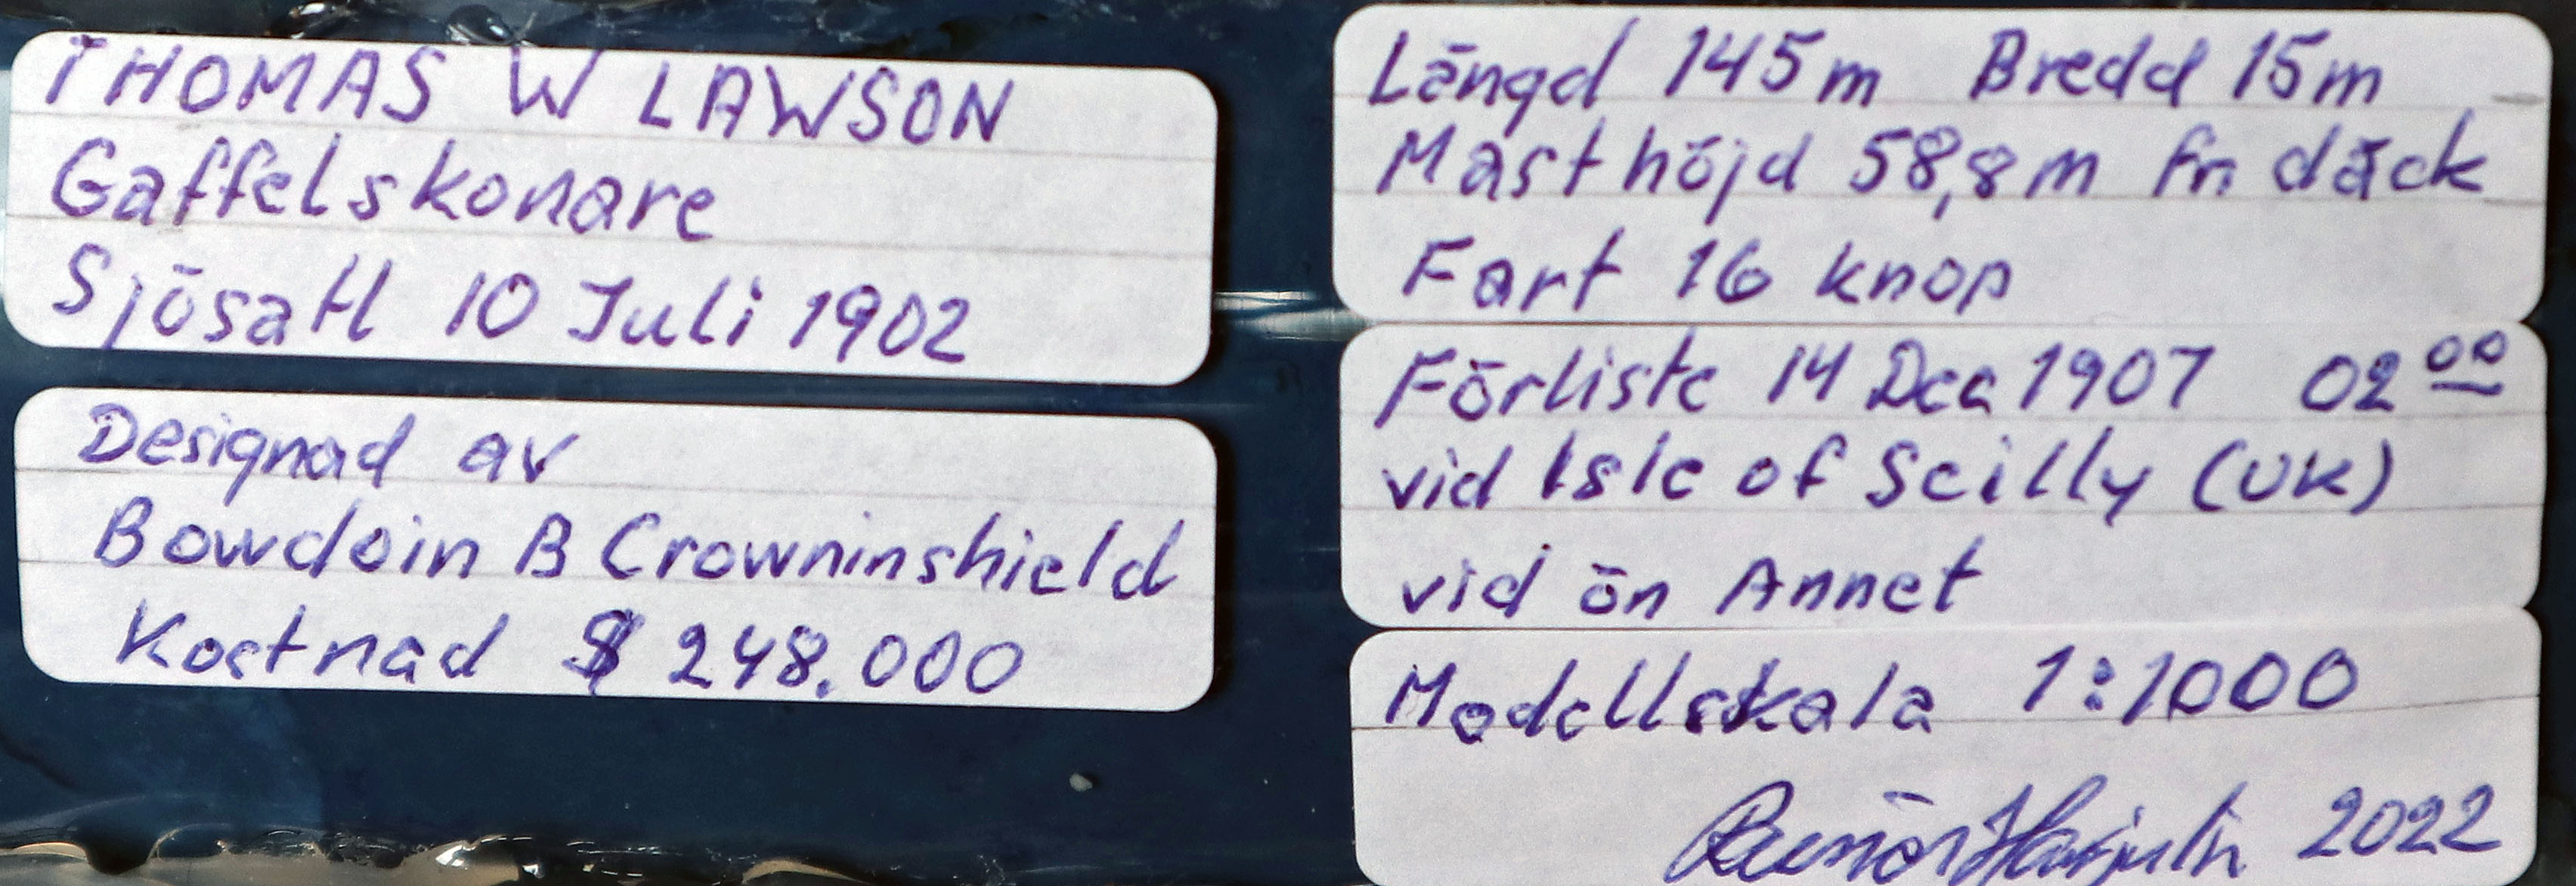 THOMAS W LAWSON
Gaffelskonare
Sjösatt 10 Juli 1902
Designad av
Bowdoin B Crowninshield
Kostnad $ 248.000
Längd 145m Bredd 15m
Masthöjd 58,8m frn däck
Fart 16 knop
Förliste 14 Dec 1907 02 00
vid Isle of Scilly (UK)
vid ön Annet
Modellskala 1:1000
2022